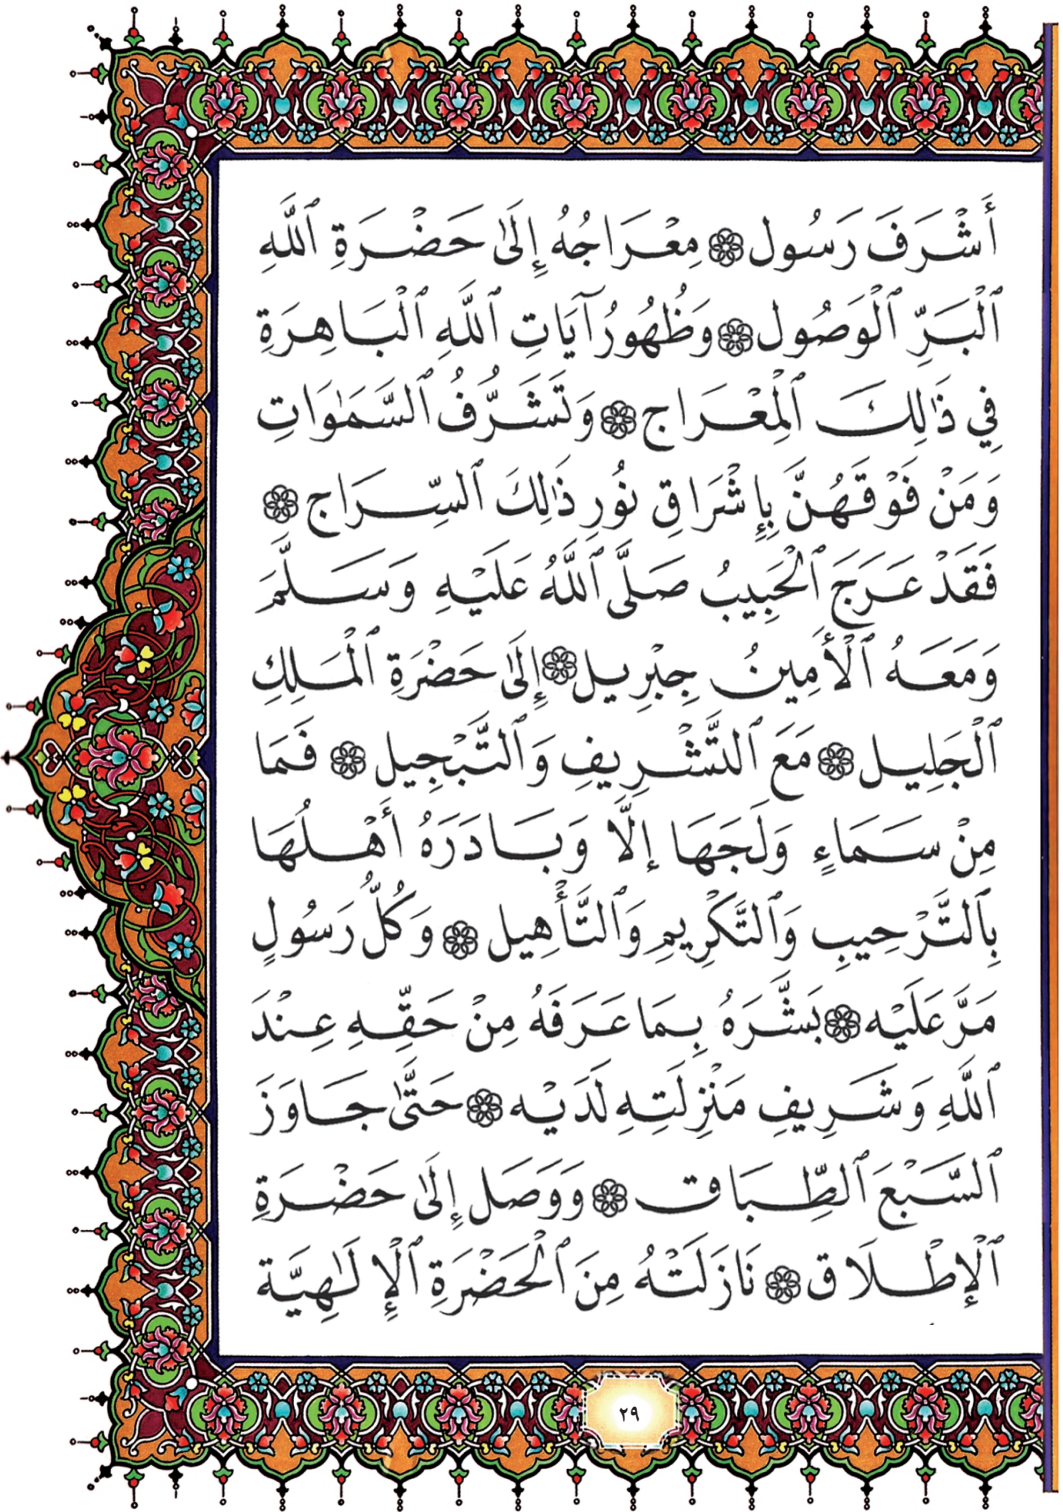 أَشْرَفَ رَسُول ۞ مِعْرَاجُهُ إِلَىٰ حَضْرَةِ ٱللَّهِ
ٱلْبَرِّ ٱلْوَصُول ۞ وَظُهُورُ آيَاتِ ٱللَّهِ ٱلْبَاهِرَةِ
فِي ذَٰلِكَ ٱلْمِعْرَاج ۞ وَتَشَرُّفُ ٱلسَّمَٰوَاتِ
وَمَنْ فَوْقَهُنَّ بِإِشْرَاقِ نُورِ ذَٰلِكَ ٱلسِّرَاج ۞
فَقَدْ عَرَجَ ٱلْحَبِيبُ صَلَّى ٱللَّهُ عَلَيْهِ وَسَلَّمَ
وَمَعَهُ ٱلْأَمِينُ جِبْرِيل ۞ إِلَىٰ حَضْرَةِ ٱلْمَلِكِ
ٱلْجَلِيل ۞ مَعَ ٱلتَّشْرِيفِ وَٱلتَّبْجِيل ۞ فَمَا
مِنْ سَمَاءٍ وَلَجَهَا إِلَّا وَبَادَرَهُ أَهْلُهَا
بِٱلتَّرْحِيبِ وَٱلتَّكْرِيمِ وَٱلتَّأْهِيل ۞ وَكُلُّ رَسُولٍ
مَرَّ عَلَيْه ۞ بَشَّرَهُ بِمَا عَرَفَهُ مِنْ حَقِّهِ عِنْدَ
ٱللَّهِ وَشَرِيفِ مَنْزِلَتِهِ لَدَيْه ۞ حَتَّىٰ جَاوَزَ
ٱلسَّبْعَ ٱلطِّبَاق ۞ وَوَصَلَ إِلَىٰ حَضْرَةِ
ٱلْإِطْلَاق ۞ نَازَلَتْهُ مِنَ ٱلْحَضْرَةِ ٱلْإِلَٰهِيَّة
٢٩